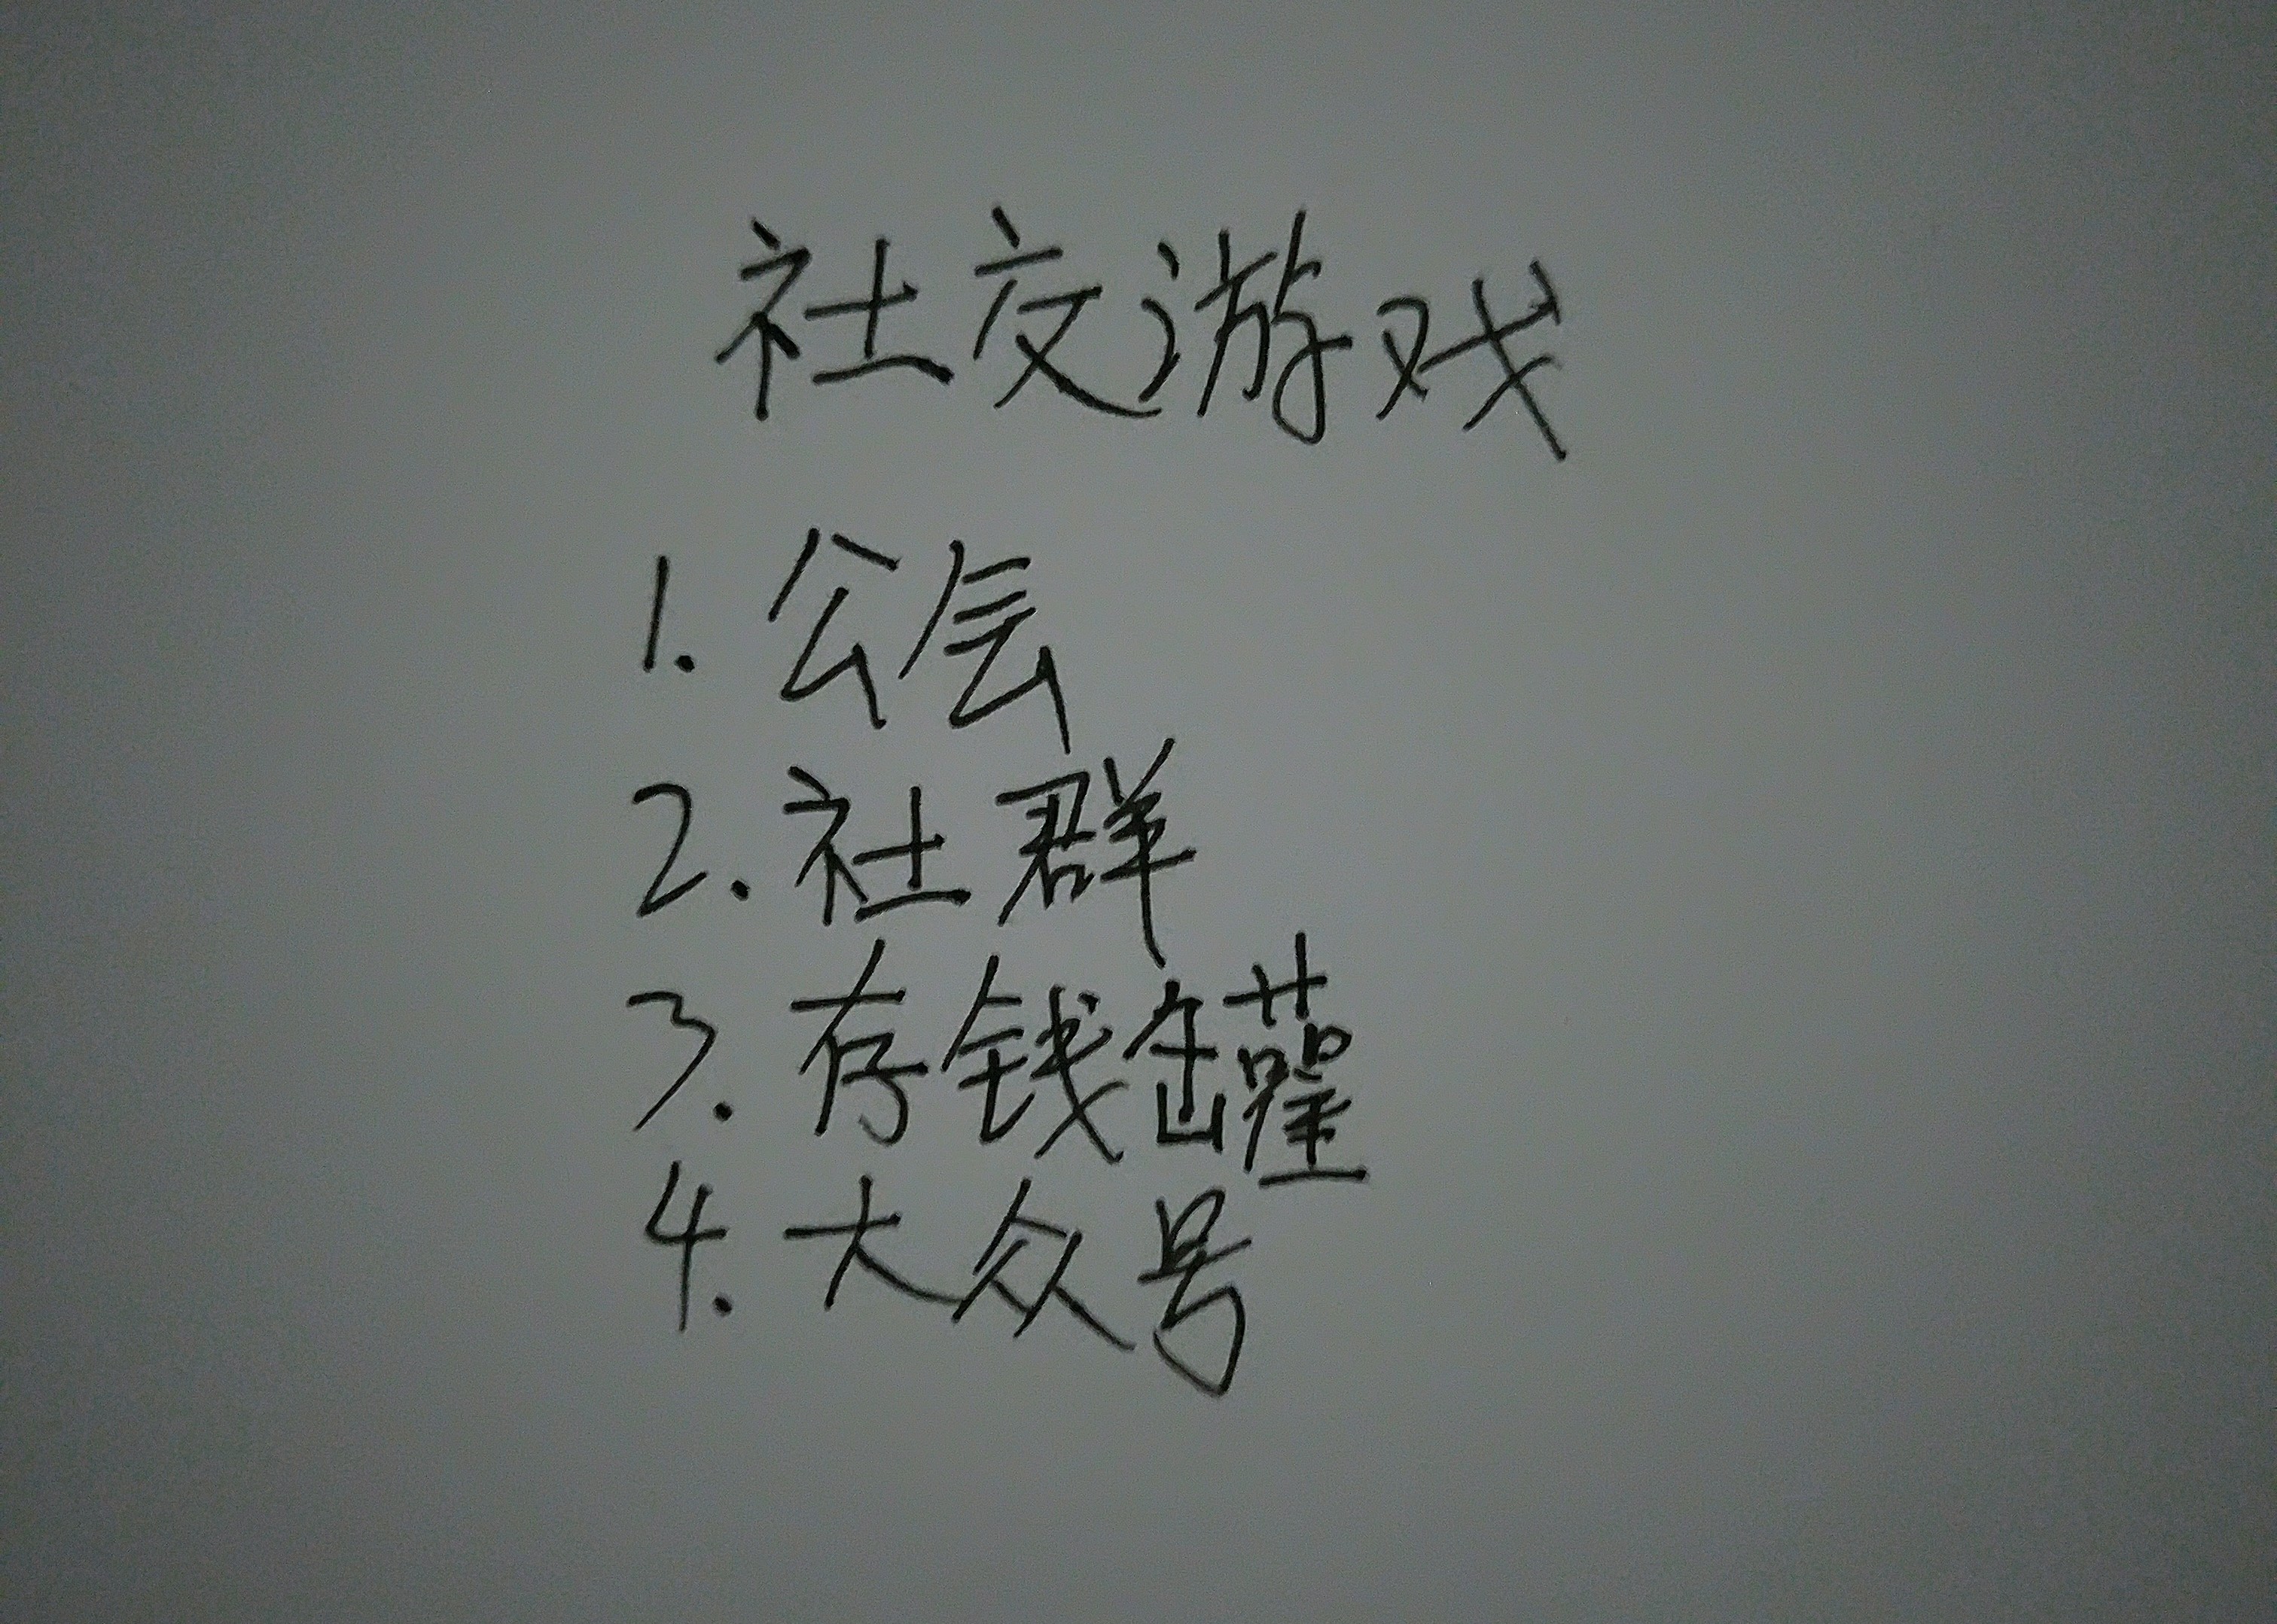 社交游戏
1. 公会
2. 社群
3. 存钱罐
4. 大众号